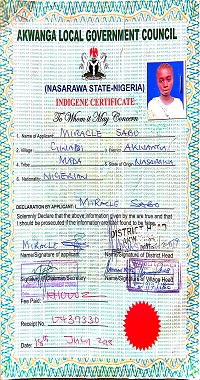 AKWANGA LOCAL GOVERNMENT COUNCIL
(NASARAWA STATE-NIGERIA)
INDIGENE CERTIFICATE
To Whom it May Concern
1. Name of Applicant: MIRACLE SABO
2. Village GWABI 3. District AKWANGA
4. Tribe MADA 5. State of Origin NASARAWA
6. Nationality: NIGERIAN
DECLARATION BY APPLICANT: I MIRACLE SABO
Solemnly Declare that the above information given by me are true and that
I should be prosecuted if the information are found to be false
DISTRICT HEAD
Miracle
Name/Signature of applicant Name/signature of District Head
Signature of Chairman/Secretary Name/Signature of Village Head
Fee Paid:
Receipt No:
Date: 18th July